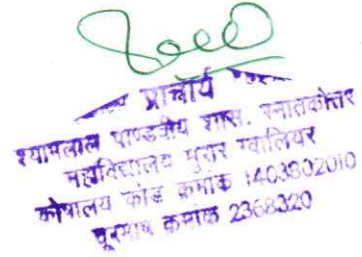 प्राचार्य
श्यामलाल पाण्डवीय शास. स्नातकोत्तर
महाविद्यालय मुरार ग्वालियर
कोषालय कोड क्रमांक 1403302010
दूरभाष क्रमांक 2368320